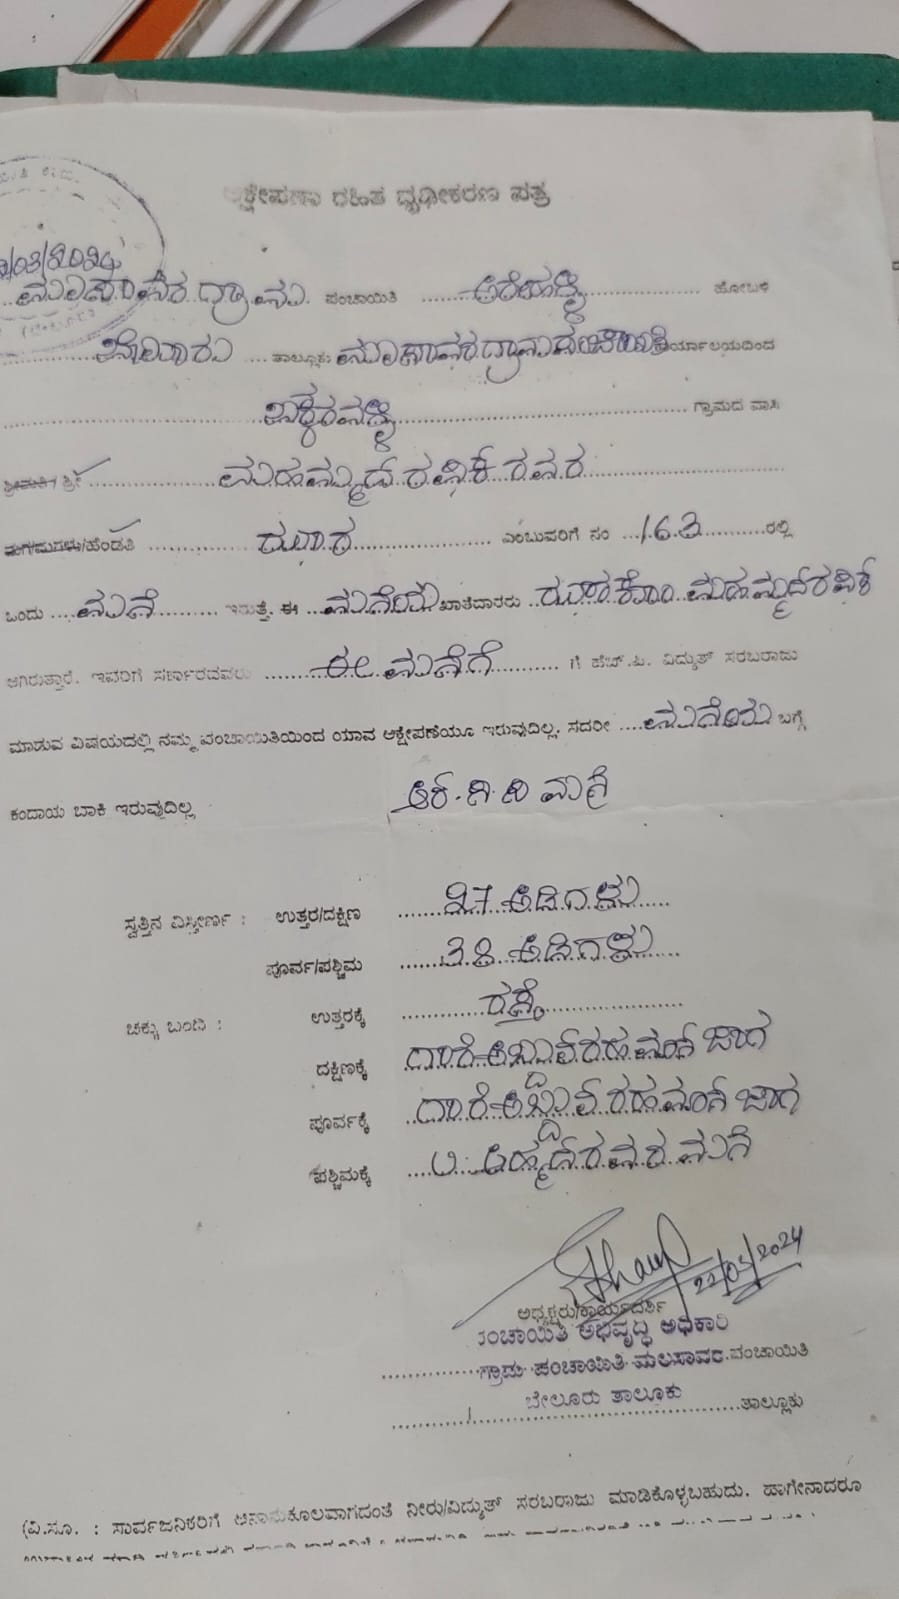 ಆಕ್ಷೇಪಣಾ ರಹಿತ ದೃಢೀಕರಣ ಪತ್ರ
ಗ್ರಾಮ ಪಂಚಾಯಿತಿ ಅರೆಹಳ್ಳಿ ಹೋಬಳಿ
ಬೇಲೂರು ತಾಲ್ಲೂಕು ಗ್ರಾಮ ಪಂಚಾಯಿತಿ ಕಾರ್ಯಾಲಯದಿಂದ
ಗ್ರಾಮದ ವಾಸಿ
ಶ್ರೀಮತಿ/ಶ್ರೀ ಮಹಮ್ಮದ್ ರಫಿಕ್ ರವರ
ಮಗ/ಮಗಳು/ಹೆಂಡತಿ ಎಂಬುವರಿಗೆ ನಂ 163 ರಲ್ಲಿ
ಒಂದು ಮನೆ ಇರುತ್ತೆ. ಈ ಮನೆಯ ಖಾತೆದಾರರು ಕೋಂ ಮಹಮ್ಮದ್ ರಫಿಕ್
ಆಗಿರುತ್ತಾರೆ. ಇವರಿಗೆ ಈ ಮನೆಗೆ ಗೆ ಹೆಚ್.ಪಿ. ವಿದ್ಯುತ್ ಸರಬರಾಜು
ಮಾಡುವ ವಿಷಯದಲ್ಲಿ ನಮ್ಮ ಪಂಚಾಯಿತಿಯಿಂದ ಯಾವ ಆಕ್ಷೇಪಣೆಯೂ ಇರುವುದಿಲ್ಲ. ಸದರೀ ಮನೆಯ ಬಗ್ಗೆ
ಕಂದಾಯ ಬಾಕಿ ಇರುವುದಿಲ್ಲ ಆರ್.ಸಿ.ಸಿ ಮನೆ
ಸ್ವತ್ತಿನ ವಿಸ್ತೀರ್ಣ : ಉತ್ತರ/ದಕ್ಷಿಣ 27 ಅಡಿಗಳು
ಪೂರ್ವ/ಪಶ್ಚಿಮ 38 ಅಡಿಗಳು
ಚಕ್ಕು ಬಂದಿ : ಉತ್ತರಕ್ಕೆ ರಸ್ತೆ
ದಕ್ಷಿಣಕ್ಕೆ ಗಾರೆ ಅಬ್ದುಲ್ ರಹಮಾನ್ ಜಾಗ
ಪೂರ್ವಕ್ಕೆ ಗಾರೆ ಅಬ್ದುಲ್ ರಹಮಾನ್ ಜಾಗ
ಪಶ್ಚಿಮಕ್ಕೆ ಅಹ್ಮದ್ ರವರ ಮನೆ
22/03/2024
ಅಧ್ಯಕ್ಷರು/ಕಾರ್ಯದರ್ಶಿ
ಪಂಚಾಯಿತಿ ಅಭಿವೃದ್ಧಿ ಅಧಿಕಾರಿ
ಗ್ರಾಮ ಪಂಚಾಯಿತಿ ಮಲಸಾವರ ಪಂಚಾಯಿತಿ
ಬೇಲೂರು ತಾಲ್ಲೂಕು
ತಾಲ್ಲೂಕು
(ವಿ.ಸೂ. : ಸಾರ್ವಜನಿಕರಿಗೆ ಅನಾನುಕೂಲವಾಗದಂತೆ ನೀರು/ವಿದ್ಯುತ್ ಸರಬರಾಜು ಮಾಡಿಕೊಳ್ಳಬಹುದು. ಹಾಗೇನಾದರೂ